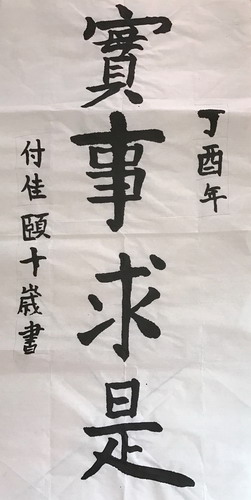 丁酉年
實事求是
付佳頤十歲書